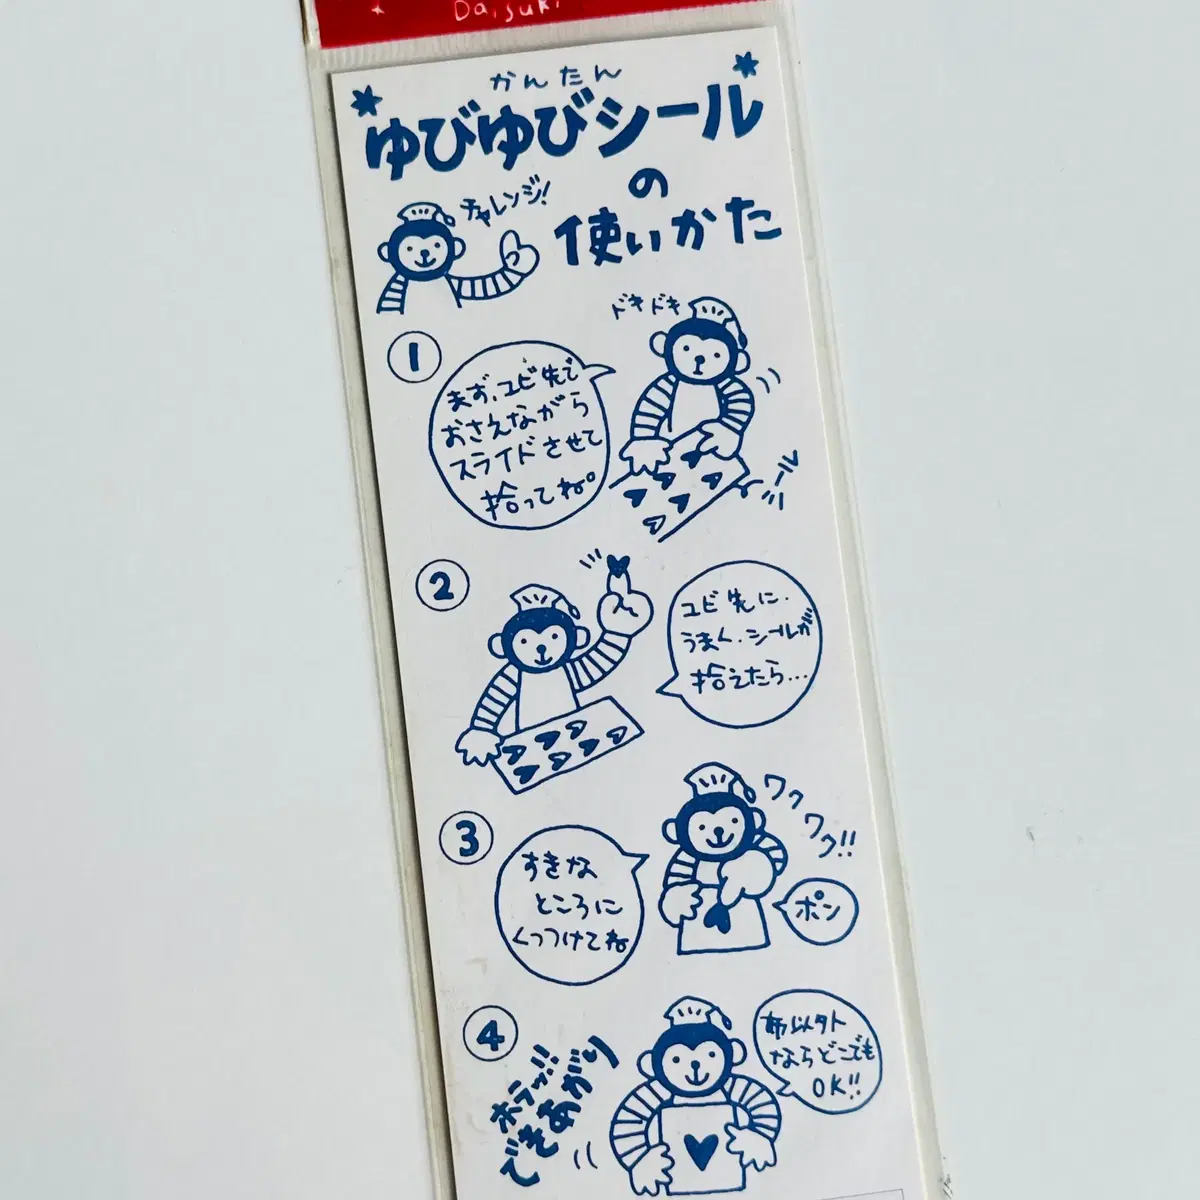 Daisuki
かんたん
ゆびゆびシール
の
使いかた
チャレンジ!
1
まず、ユビ先で
おさえながら
スライドさせて
拾ってね。
ドキドキ
2
ユビ先に、
うまく、シールが
拾えたら...
3
すきな
ところに
くっつけてね
ワクワク!!
ポン
4
ホラッ!!
できあがり
布以外
ならどこでも
OK!!